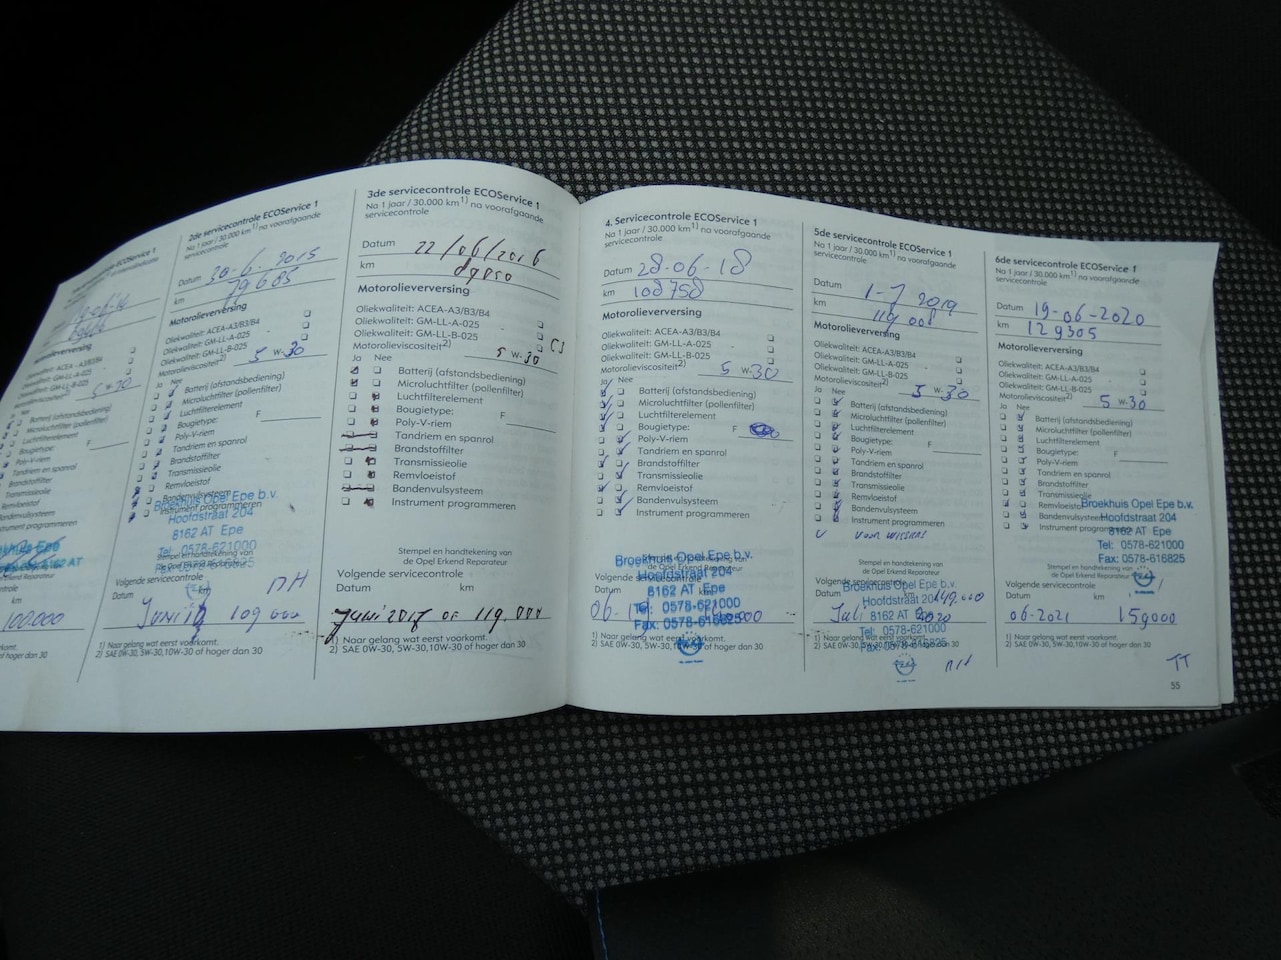 2de servicecontrole ECOService 1
Na 1 jaar / 30.000 km1) na voorafgaande
servicecontrole
Datum 30-6-2015
km 79685
Motorolieverversing
Oliekwaliteit: ACEA-A3/B3/B4
Oliekwaliteit: GM-LL-A-025
Oliekwaliteit: GM-LL-B-025
Motorolieviscositeit2) 5 W-30
Ja Nee
Batterij (afstandsbediening)
Microluchtfilter (pollenfilter)
Luchtfilterelement
Bougietype: F
Poly-V-riem
Tandriem en spanrol
Brandstoffilter
Transmissieolie
Remvloeistof
Bandenvulsysteem
Instrument programmeren
Broekhuis Opel Epe b.v.
Hoofdstraat 204
8162 AT Epe
Tel: 0578-621000
Stempel en handtekening van
de Opel Erkend Reparateur
Volgende servicecontrole
Datum km
Juni 109.000
1) Naar gelang wat eerst voorkomt.
2) SAE 0W-30, 5W-30, 10W-30 of hoger dan 30
3de servicecontrole ECOService 1
Na 1 jaar / 30.000 km1) na voorafgaande
servicecontrole
Datum 22/06/2016
km
Motorolieverversing
Oliekwaliteit: ACEA-A3/B3/B4
Oliekwaliteit: GM-LL-A-025
Oliekwaliteit: GM-LL-B-025
Motorolieviscositeit2) 5 W-30
Ja Nee
Batterij (afstandsbediening)
Microluchtfilter (pollenfilter)
Luchtfilterelement
Bougietype: F
Poly-V-riem
Tandriem en spanrol
Brandstoffilter
Transmissieolie
Remvloeistof
Bandenvulsysteem
Instrument programmeren
Stempel en handtekening van
de Opel Erkend Reparateur
Volgende servicecontrole
Datum km
Juni 2017 of 119.000
1) Naar gelang wat eerst voorkomt.
2) SAE 0W-30, 5W-30, 10W-30 of hoger dan 30
4. Servicecontrole ECOService 1
Na 1 jaar / 30.000 km1) na voorafgaande
servicecontrole
Datum 28-06-18
km 108758
Motorolieverversing
Oliekwaliteit: ACEA-A3/B3/B4
Oliekwaliteit: GM-LL-A-025
Oliekwaliteit: GM-LL-B-025
Motorolieviscositeit2) 5 W-30
Ja Nee
Batterij (afstandsbediening)
Microluchtfilter (pollenfilter)
Luchtfilterelement
Bougietype: F
Poly-V-riem
Tandriem en spanrol
Brandstoffilter
Transmissieolie
Remvloeistof
Bandenvulsysteem
Instrument programmeren
Broekhuis Opel Epe b.v.
Hoofdstraat 204
8162 AT Epe
Tel: 0578-621000
Fax: 0578-616825
1) Naar gelang wat eerst voorkomt.
2) SAE 0W-30, 5W-30, 10W-30 of hoger dan 30
5de servicecontrole ECOService 1
Na 1 jaar / 30.000 km1) na voorafgaande
servicecontrole
Datum 1-7 2019
km 119008
Motorolieverversing
Oliekwaliteit: ACEA-A3/B3/B4
Oliekwaliteit: GM-LL-A-025
Oliekwaliteit: GM-LL-B-025
Motorolieviscositeit2) 5 W-30
Ja Nee
Batterij (afstandsbediening)
Microluchtfilter (pollenfilter)
Luchtfilterelement
Bougietype: F
Poly-V-riem
Tandriem en spanrol
Brandstoffilter
Transmissieolie
Remvloeistof
Bandenvulsysteem
Instrument programmeren
Stempel en handtekening van
de Opel Erkend Reparateur
Broekhuis Opel Epe b.v.
Hoofdstraat 204
8162 AT Epe
Tel: 0578-621000
Fax: 0578-616825
Juli 2020 149.000
1) Naar gelang wat eerst voorkomt.
6de servicecontrole ECOService 1
Na 1 jaar / 30.000 km1) na voorafgaande
servicecontrole
Datum 19-06-2020
km 129305
Motorolieverversing
Oliekwaliteit: ACEA-A3/B3/B4
Oliekwaliteit: GM-LL-A-025
Oliekwaliteit: GM-LL-B-025
Motorolieviscositeit2) 5 W-30
Ja Nee
Batterij (afstandsbediening)
Microluchtfilter (pollenfilter)
Luchtfilterelement
Bougietype: F
Poly-V-riem
Tandriem en spanrol
Brandstoffilter
Transmissieolie
Remvloeistof
Bandenvulsysteem
Instrument programmeren
Broekhuis Opel Epe b.v.
Hoofdstraat 204
8162 AT Epe
Tel: 0578-621000
Fax: 0578-616825
Stempel en handtekening van
de Opel Erkend Reparateur
Volgende servicecontrole
Datum km
06-2021 159000
1) Naar gelang wat eerst voorkomt.
2) SAE 0W-30, 5W-30, 10W-30 of hoger dan 30
TT
55